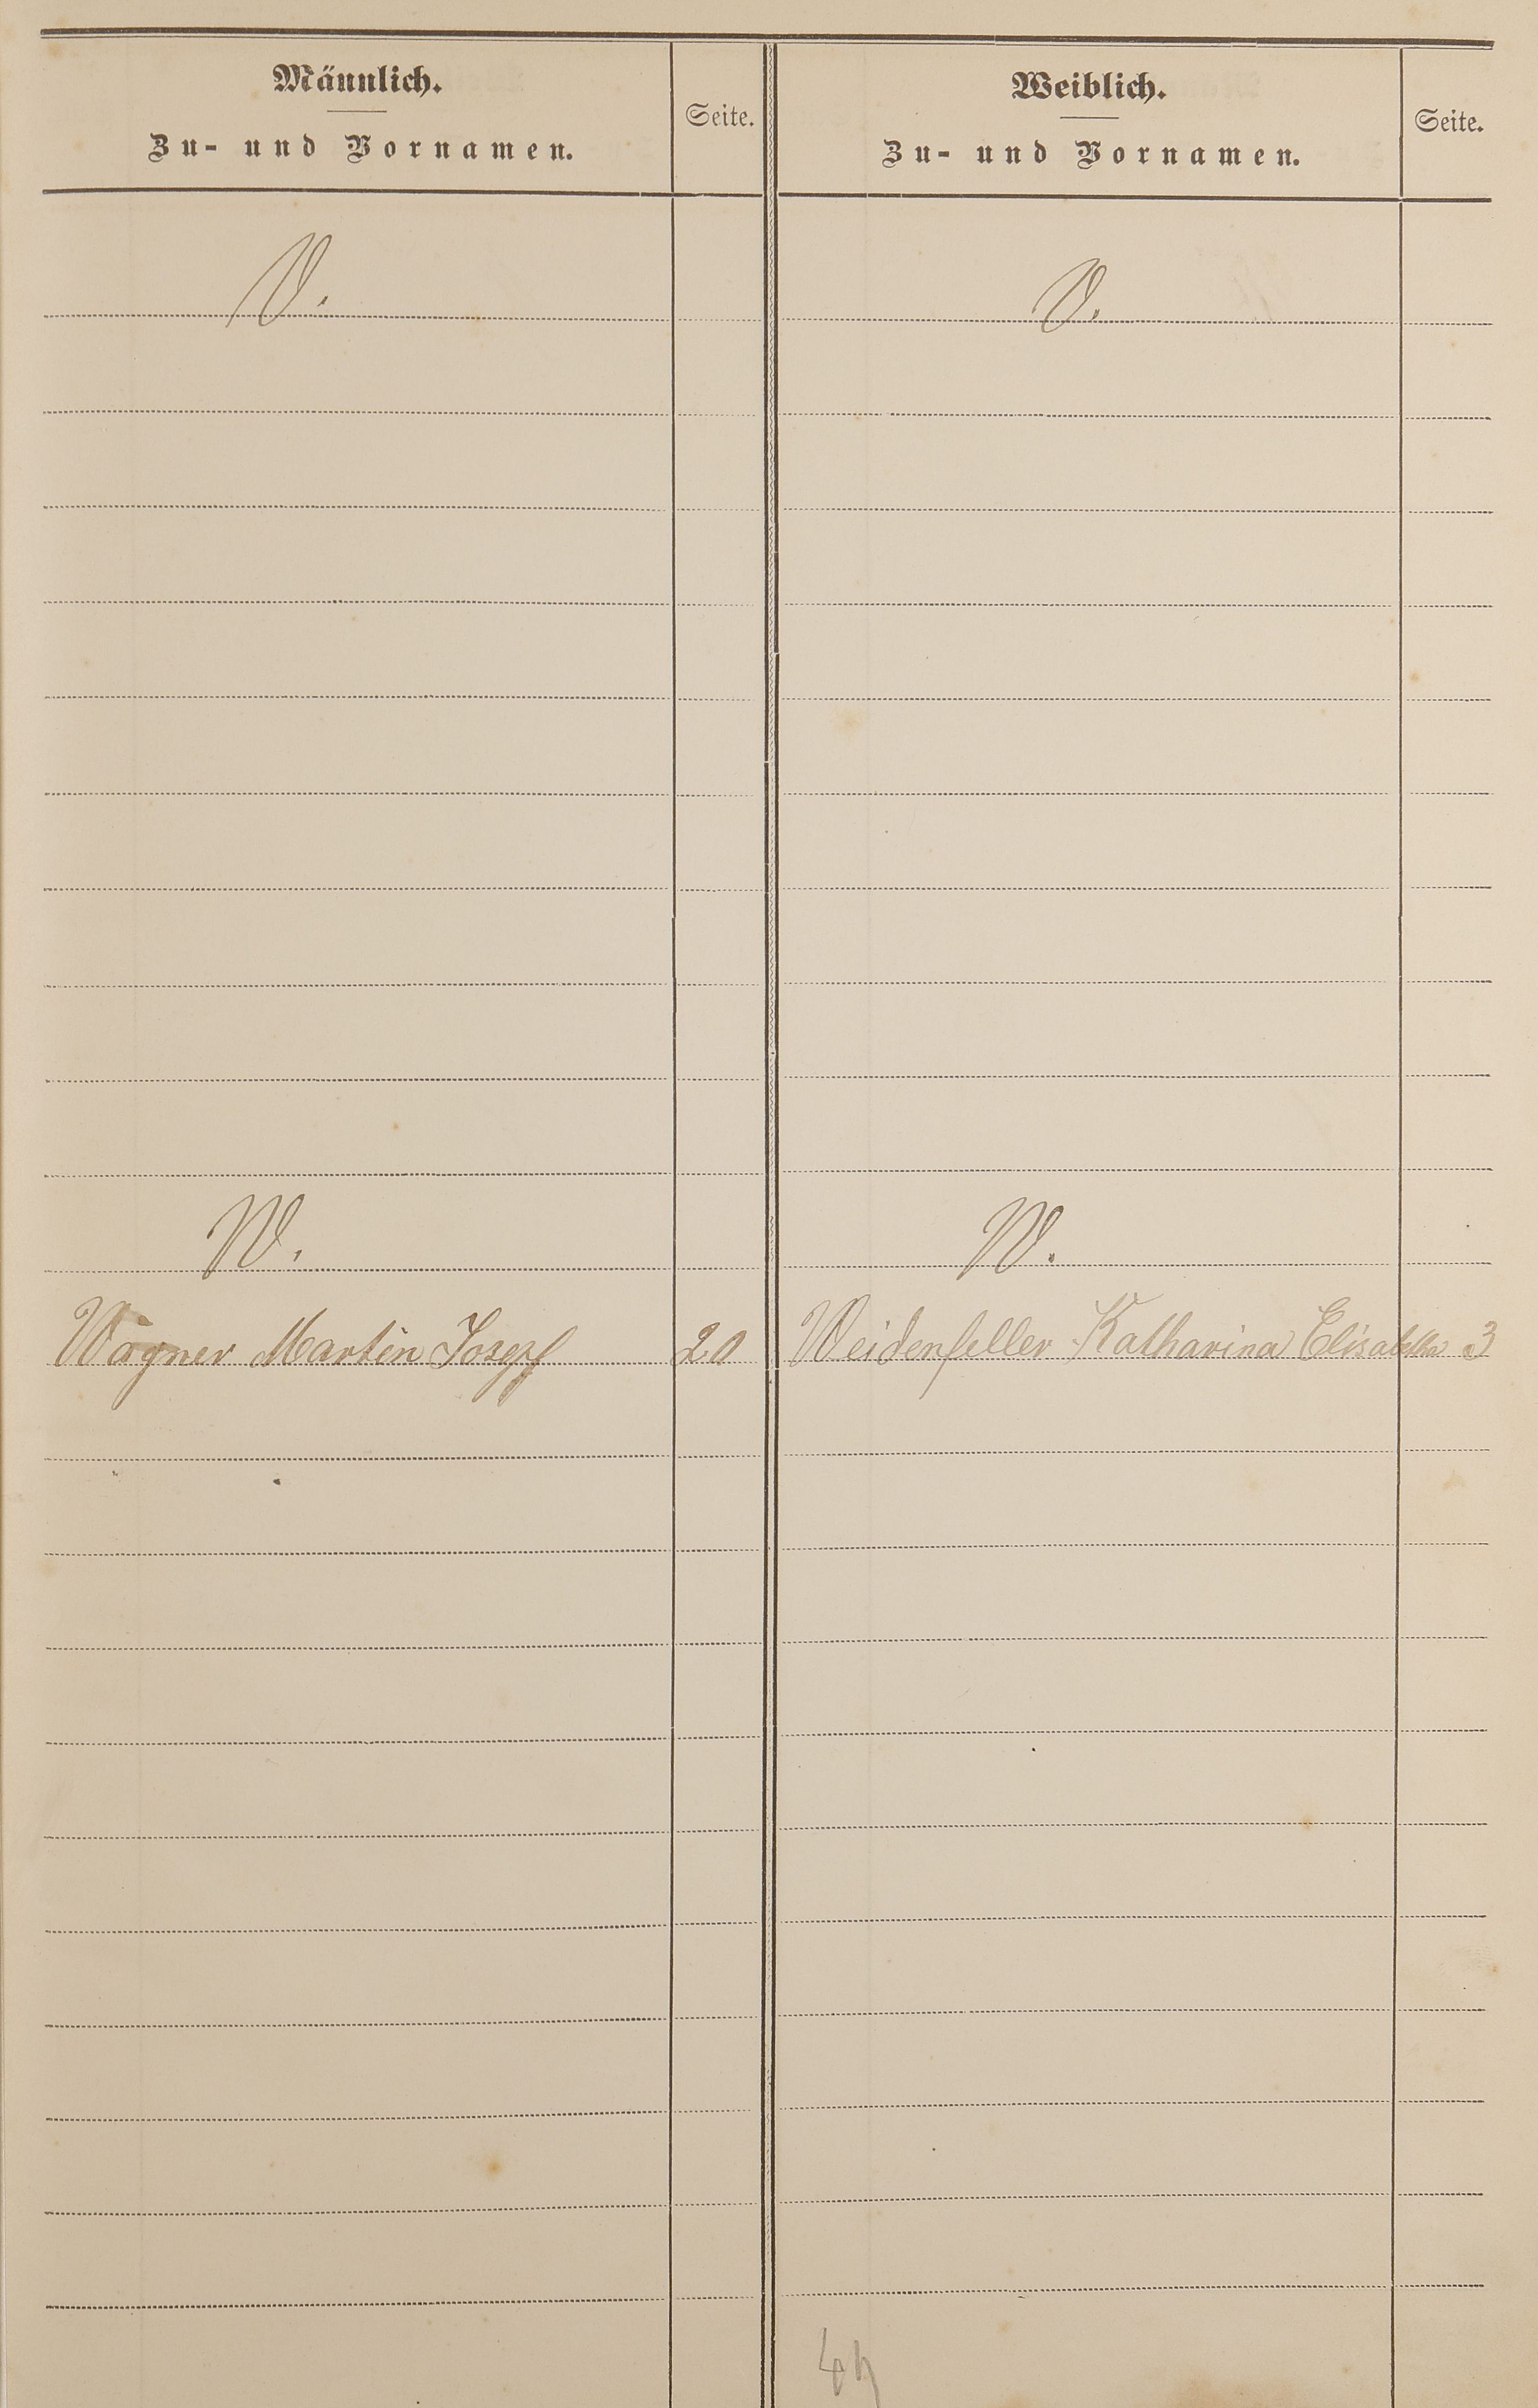 Männlich. Seite. Weiblich. Seite.
Zu- und Vornamen. Zu- und Vornamen.
V. V.
W. W.
Wagner Martin Josepf 20 Weidenfeller Katharina Elisabetha 3